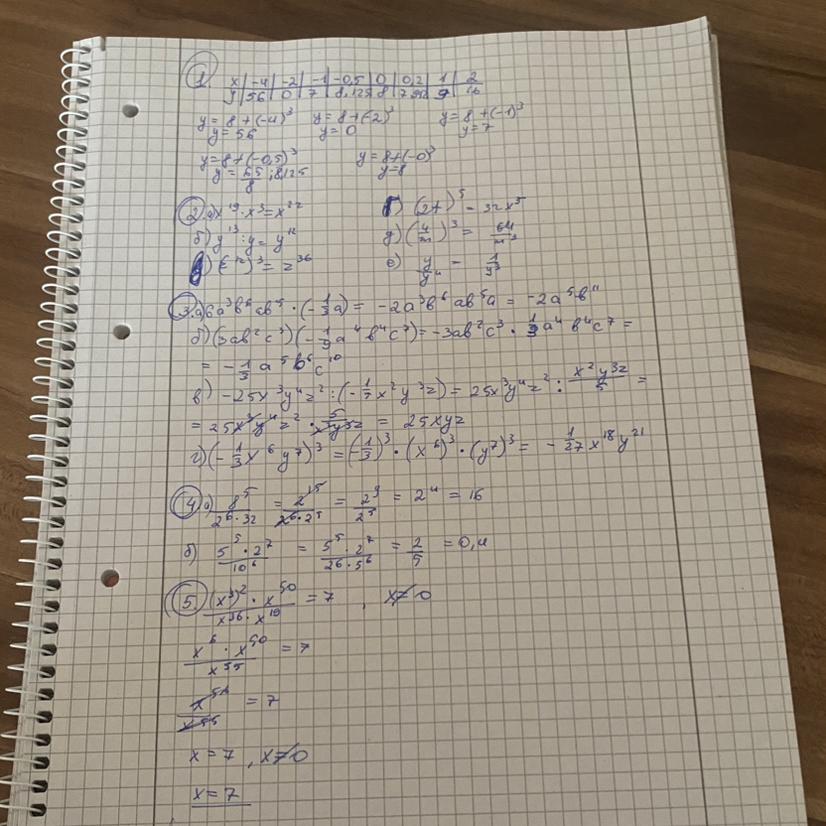 1. x | -4 | -2 | -1 | -0,5 | 0 | 0,2 | 1 | 2
y | 56 | 0 | 7 | 8,125 | 8 | 9 | 16
y = 8 + (-4)³ y = 8 + (-2)³ y = 8 + (-1)³
y = 56 y = 0 y = 7
y = 8 + (-0,5)³ y = 8 + (-0)³
y = 65/8 ; 8,125 y = 8
2 а) x¹⁹ · x³ = x²²
б) y¹³ : y = y¹²
в) )³ = z³⁶
г) )⁵ = 32x⁵
д) (4/m)³ = 64/m³
е) y/y⁴ = 1/y³
3. а) 6a³b⁶ab⁵ · (-1/3a) = -2a³b⁶ab⁵a = -2a⁵b¹¹
б) (3ab²c³)(-1/9a⁴b⁴c⁷) = -3ab²c³ · 1/9a⁴b⁴c⁷ =
= -1/3a⁵b⁶c¹⁰
в) -25x³y⁴z² : (-1/5x²y³z) = 25x³y⁴z² : x²y³z/5 =
= 25x³y⁴z² · 5/x²y³z = 25xyz
г) (-1/3x⁶y⁷)³ = (-1/3)³ · (x⁶)³ · (y⁷)³ = -1/27x¹⁸y²¹
4 а) 8⁵/2⁶·32 = 2¹⁵/2⁶·2⁵ = 2⁹/2⁵ = 2⁴ = 16
б) 5⁵·2⁷/10⁶ = 5⁵·2⁷/26·5⁶ = 2/5 = 0,4
5. (x³)²·x⁵⁰/x³⁶·x¹⁹ = 7 , x≠0
x⁶·x⁵⁰/x⁵⁵ = 7
x⁵⁶/x⁵⁵ = 7
x = 7 , x≠0
x = 7